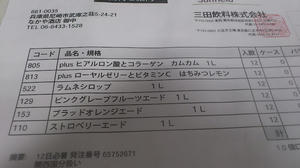 661-0035
兵庫県尼崎市武庫之荘5-24-21
なかや酒店 御中
TEL 06-6433-1528
三田飲料株式会社
コード 品名・規格 入数 ケース バラ
805 plus ヒアルロン酸とコラーゲン カムカム 1L 12
813 plus ローヤルゼリーとビタミンC はちみつレモン 12
522 ラムネシロップ 1L 12
129 ピンクグレープフルーツエード 1L 12
153 ブラッドオレンジエード 1L 12
110 ストロベリーエード 1L 12
12日必着 発注番号 65752671